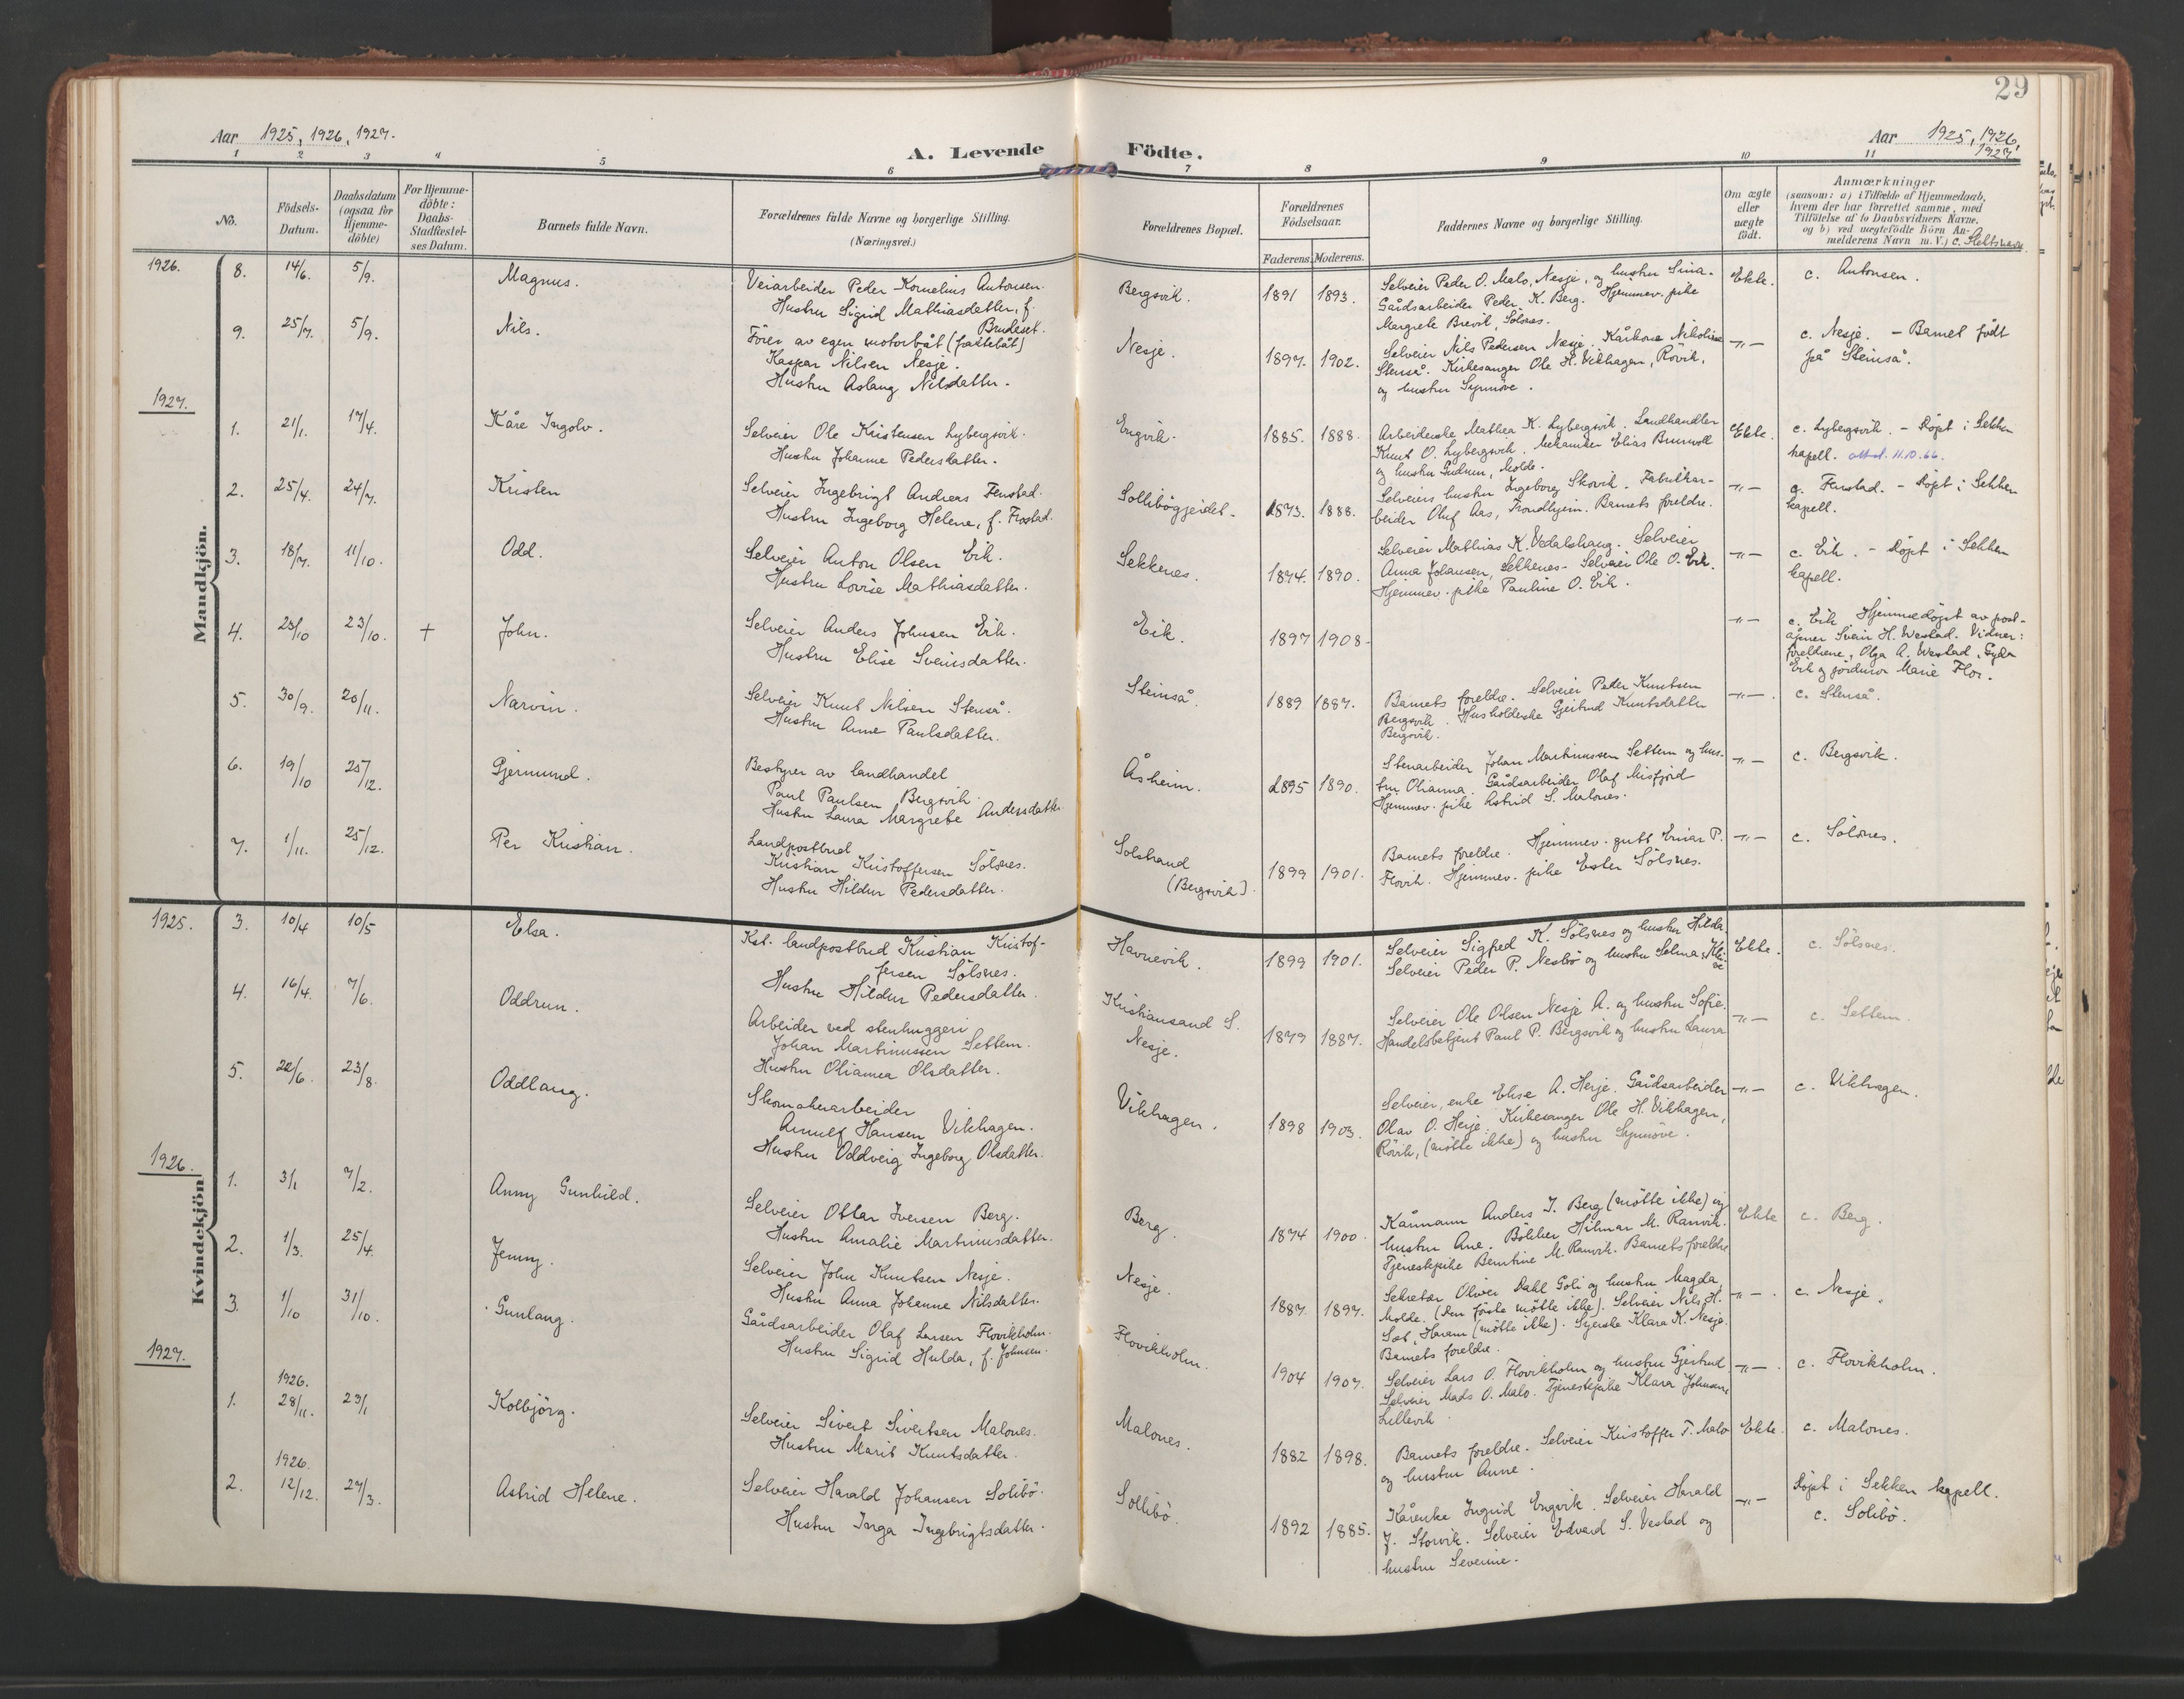 29
Aar 1925, 1926, 1927.
A. Levende Födte.
Aar 1925, 1926, 1927.
1 2 3 4 5 6 7 8 9 10 11
No.
Födsels-Datum.
Daabsdatum (ogsaa for Hjemme-döbte)
For Hjemme-döbte: Daabs-Stadfæstel-ses Datum.
Barnets fulde Navn.
Forældrenes fulde Navne og borgerlige Stilling. (Næringsvei.)
Forældrenes Bopæl.
Forældrenes Födselsaar.
Faderens. Moderens.
Faddernes Navne og borgerlige Stilling.
Om ægte eller uægte født.
Anmærkninger
(saasom: a) i Tilfælde af Hjemmedaab,
hvem der har forrettet samme, med
Tilføielse af to Daabsvidners Navne,
og b) ved uægtefødte Börn An-
melderens Navn m. V.) c. Slektsnavn
Mandkjön.
1926.
8. 14/6. 5/9. Magnus.
Veiarbeider Peder Kornelius Antonsen.
Hustru Sigrid Mathiasdatter, f. Brudeset.
Bergsvik. 1891 1893.
Selveier Peder O. Malo, Nesje, og hustru Sina.
Gårdsarbeider Peder K. Berg. Hjemmev. pike
Margrete Brevik, Sölsnes.
Ekte. c. Antonsen.
9. 25/7. 5/9. Nils.
Förer av egen motorbåt (fraktebåt)
Kaspar Nilsen Nesje.
Hustru Aslaug Nilsdatter.
Nesje. 1897. 1902.
Selveier Nils Pedersen Nesje. Kårkone Nikoline
Stenså. Kirkesanger Ole H. Vikhagen, Rövik,
og hustru Synnöve.
-"- c. Nesje. - Barnet födt
på Steinså.
1927.
1. 21/1. 17/4. Kåre Ingolv.
Selveier Ole Kristensen Lybergsvik.
Hustru Johanne Pedersdatter.
Engvik. 1885. 1888.
Arbeiderske Mathea K. Lybergsvik. Landhandler
Knut O. Lybergsvik. Mekaniker Elias Brunvoll
og hustru Gudrun, Molde.
Ekte. c. Lybergsvik. - Döpt i Sekken
kapell. 11.10.66.
2. 25/4. 24/7. Kristen
Selveier Ingebrigt Andreas Frostad.
Hustru Ingeborg Helene, f. Frostad.
Sollibögjeidet. 1873. 1888.
Selveiers hustru Ingeborg Skovik. Fabrikar-
beider Oluf Aas, Trondhjem. Barnets foreldre.
-"- c. Frostad. - Döpt i Sekken
kapell.
3. 18/7. 11/10. Odd.
Selveier Anton Olsen Eik.
Hustru Lovise Mathiasdatter.
Sekkenes. 1874. 1890.
Selveier Mathias K. Vedalshaug. Selveier
Anna Johansen, Sekkenes. Selveier Ole O. Eik.
Hjemmev. pike Pauline O. Eik.
-"- c. Eik. - Döpt i Sekken
kapell.
4. 23/10 23/10. + John.
Selveier Anders Johnsen Eik.
Hustru Elise Sveinsdatter.
Eik. 1897 1908.
-"- c. Eik. Hjemmedöpt av post-
åpner Svein H. Westad. Vidner:
foreldrene, Olga A. Westad, Gyda
Eik og jordmor Marie Flor.
5. 30/9. 20/11. Narvin.
Selveier Knut Nilsen Stenså.
Hustru Anne Paulsdatter.
Steinså. 1889 1887.
Barnets foreldre. Selveier Peder Knutsen
Bergsvik. Husholderske Gjertrud Knutsdatter
Bergsvik.
-"-. c. Stenså.
6. 19/10 25/12. Gjermund.
Bestyrer av landhandel
Paul Paulsen Bergsvik.
Hustru Laura Margrete Andersdatter
Åsheim. 1895 1890.
Stenarbeider Johan Martinussen Settem og hus-
tru Olianna. Gårdsarbeider Olaf Misfjord
Hjemmev. pike Astrid S. Malones.
-"- c. Bergsvik.
7. 1/11. 25/12. Per Kristian.
Landpostbud
Kristian Kristoffersen Sölsnes.
Hustru Hildur Pedersdatter.
Solstrand
(Bergsvik). 1899 1901.
Barnets foreldre. Hjemmev. gutt Einar P.
Flovik. Hjemmev. pike Ester Sölsnes.
-"- c. Sölsnes.
Kvindekjön
1925.
3. 10/4 10/5 Elsa.
Kst. landpostbud Kristian Kristof-
fersen Sölsnes.
Hustru Hildur Pedersdatter.
Havnevik. 1899 1901.
Selveier Sigfred K. Sölsnes og hustru Hilda.
Selveier Peder P. Nesbö og hustru Selma,
Ekte. c. Sölsnes.
4. 16/4. 7/6. Oddrun.
Arbeider ved stenhuggeri
Johan Martinussen Settem.
Hustru Olianna Olsdatter.
Kristiansand S.
Nesje. 1879 1887.
Selveier Ole Olsen Nesje A. og hustru Sofie.
Handelsbetjent Paul P. Bergsvik og hustru Laura
-"- c. Settem.
5. 22/6. 23/8. Oddlaug.
Skomakerarbeider
Arnulf Hansen Vikhagen.
Hustru Oddveig Ingeborg Olsdatter.
Vikhagen. 1898 1903.
Selveier, enke Elise A. Herje. Gårdsarbeider
Olav O. Herje. Kirkesanger Ole H. Vikhagen,
Rövik, (mötte ikke) og hustru Synnöve.
-"- c. Vikhagen.
1926.
1. 3/1 7/2. Anny Gunhild.
Selveier Ottar Iversen Berg.
Hustru Amalie Martinusdatter.
Berg. 1874 1900.
Kårmann Anders I. Berg (mötte ikke) og
hustru Ane. Bökker Hilmar M. Ranvik.
Tjenestepike Berntine M. Ranvik. Barnets foreldre
Ekte c. Berg.
2. 1/3. 25/4. Jenny.
Selveier John Knutsen Nesje.
Hustru Anna Johanne Nilsdatter.
Nesje. 1887. 1897.
Sekretær Oliver Dahl Goli og hustru Magda,
Molde. (Den første mötte ikke). Selveier Nils H.
Sæt, Haram (mötte ikke). Syerske Klara K. Nesje.
Barnets foreldre.
-"-. c. Nesje.
3. 1/10 31/10. Gunlaug.
Gårdsarbeider Olaf Larsen Flovikholm.
Hustru Sigrid Hulda, f. Johnsen.
Flovikholm. 1904 1907.
Selveier Lars O. Flovikholm og hustru Gjertrud
Selveier Mads O. Malo. Tjenestepike Klara Johnsen,
Lillevik.
-"-. c. Flovikholm.
1927.
1926.
1. 28/11. 23/1 Kolbjörg.
Selveier Sivert Sivertsen Malones.
Hustru Marit Knutsdatter.
Malones. 1882 1898.
Barnets foreldre. Selveier Kristoffer T. Malo
og hustru Anne.
Ekte. c. Malones.
1926.
2. 12/12. 27/3. Astrid Helene.
Selveier Harald Johansen Solibö.
Hustru Inga Ingebrigtsdatter.
Sollibö. 1892 1885.
Kårenke Ingrid Engvik. Selveier Harald
J. Storvik. Selveier Edvard S. Vestad og
hustru Severine.
-"- Döpt i Sekken kapell.
c. Solibö.